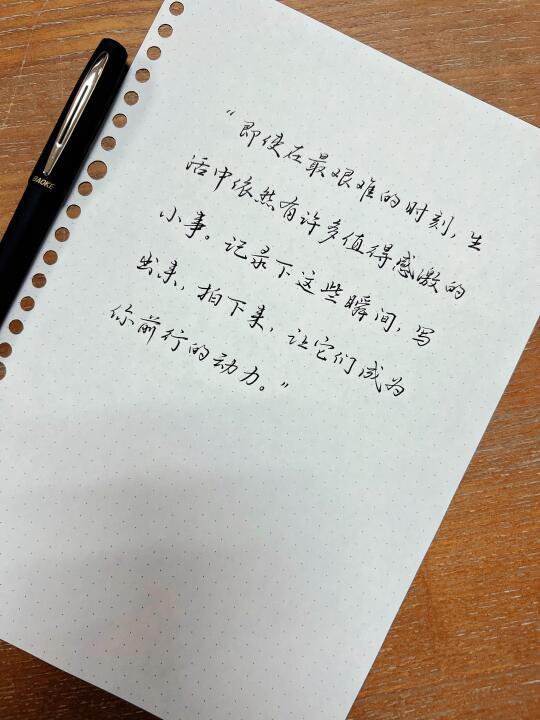 BAOKE
“即使在最艰难的时刻，生
活中依然有许多值得感激的
小事。记录下这些瞬间，写
出来，拍下来，让它们成为
你前行的动力。”